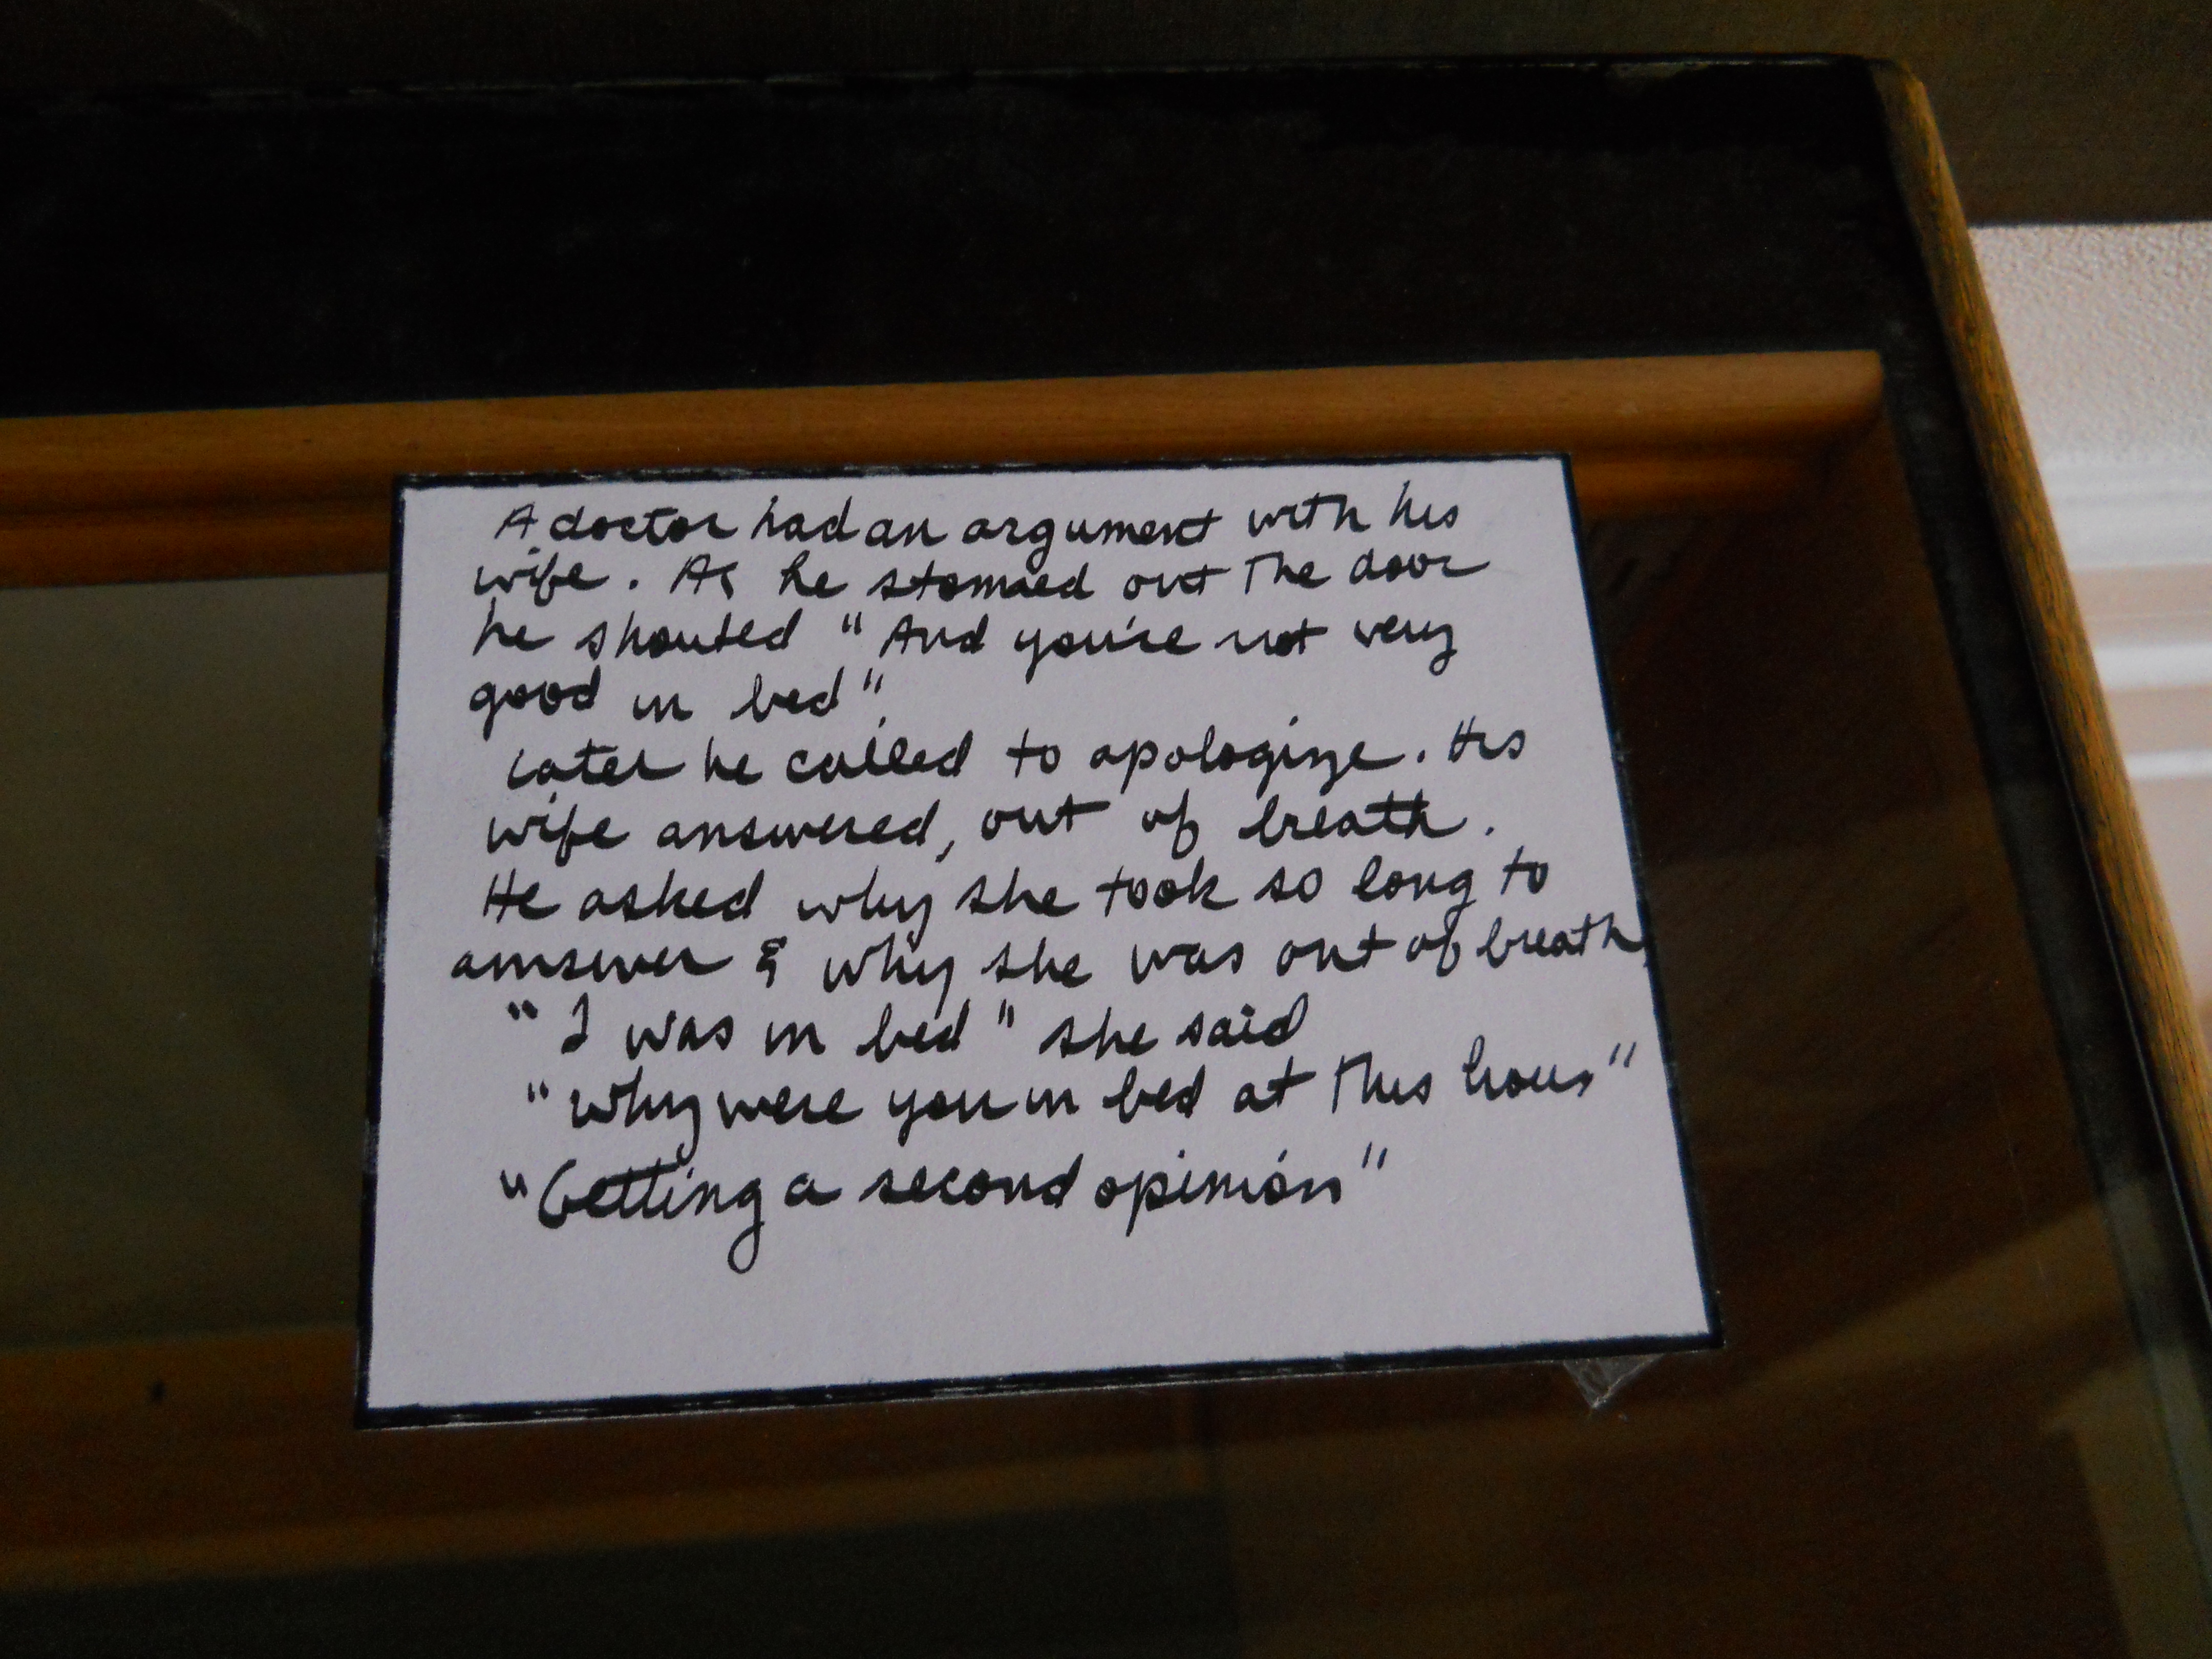 A doctor had an argument with his
wife. As he stomped out the door
he shouted "And you're not very
good in bed".
Later he called to apologize. His
wife answered, out of breath.
He asked why she took so long to
amswer & why she was out of breath.
"I was in bed" she said
"Why were you in bed at this hour"
"Getting a second opinion"